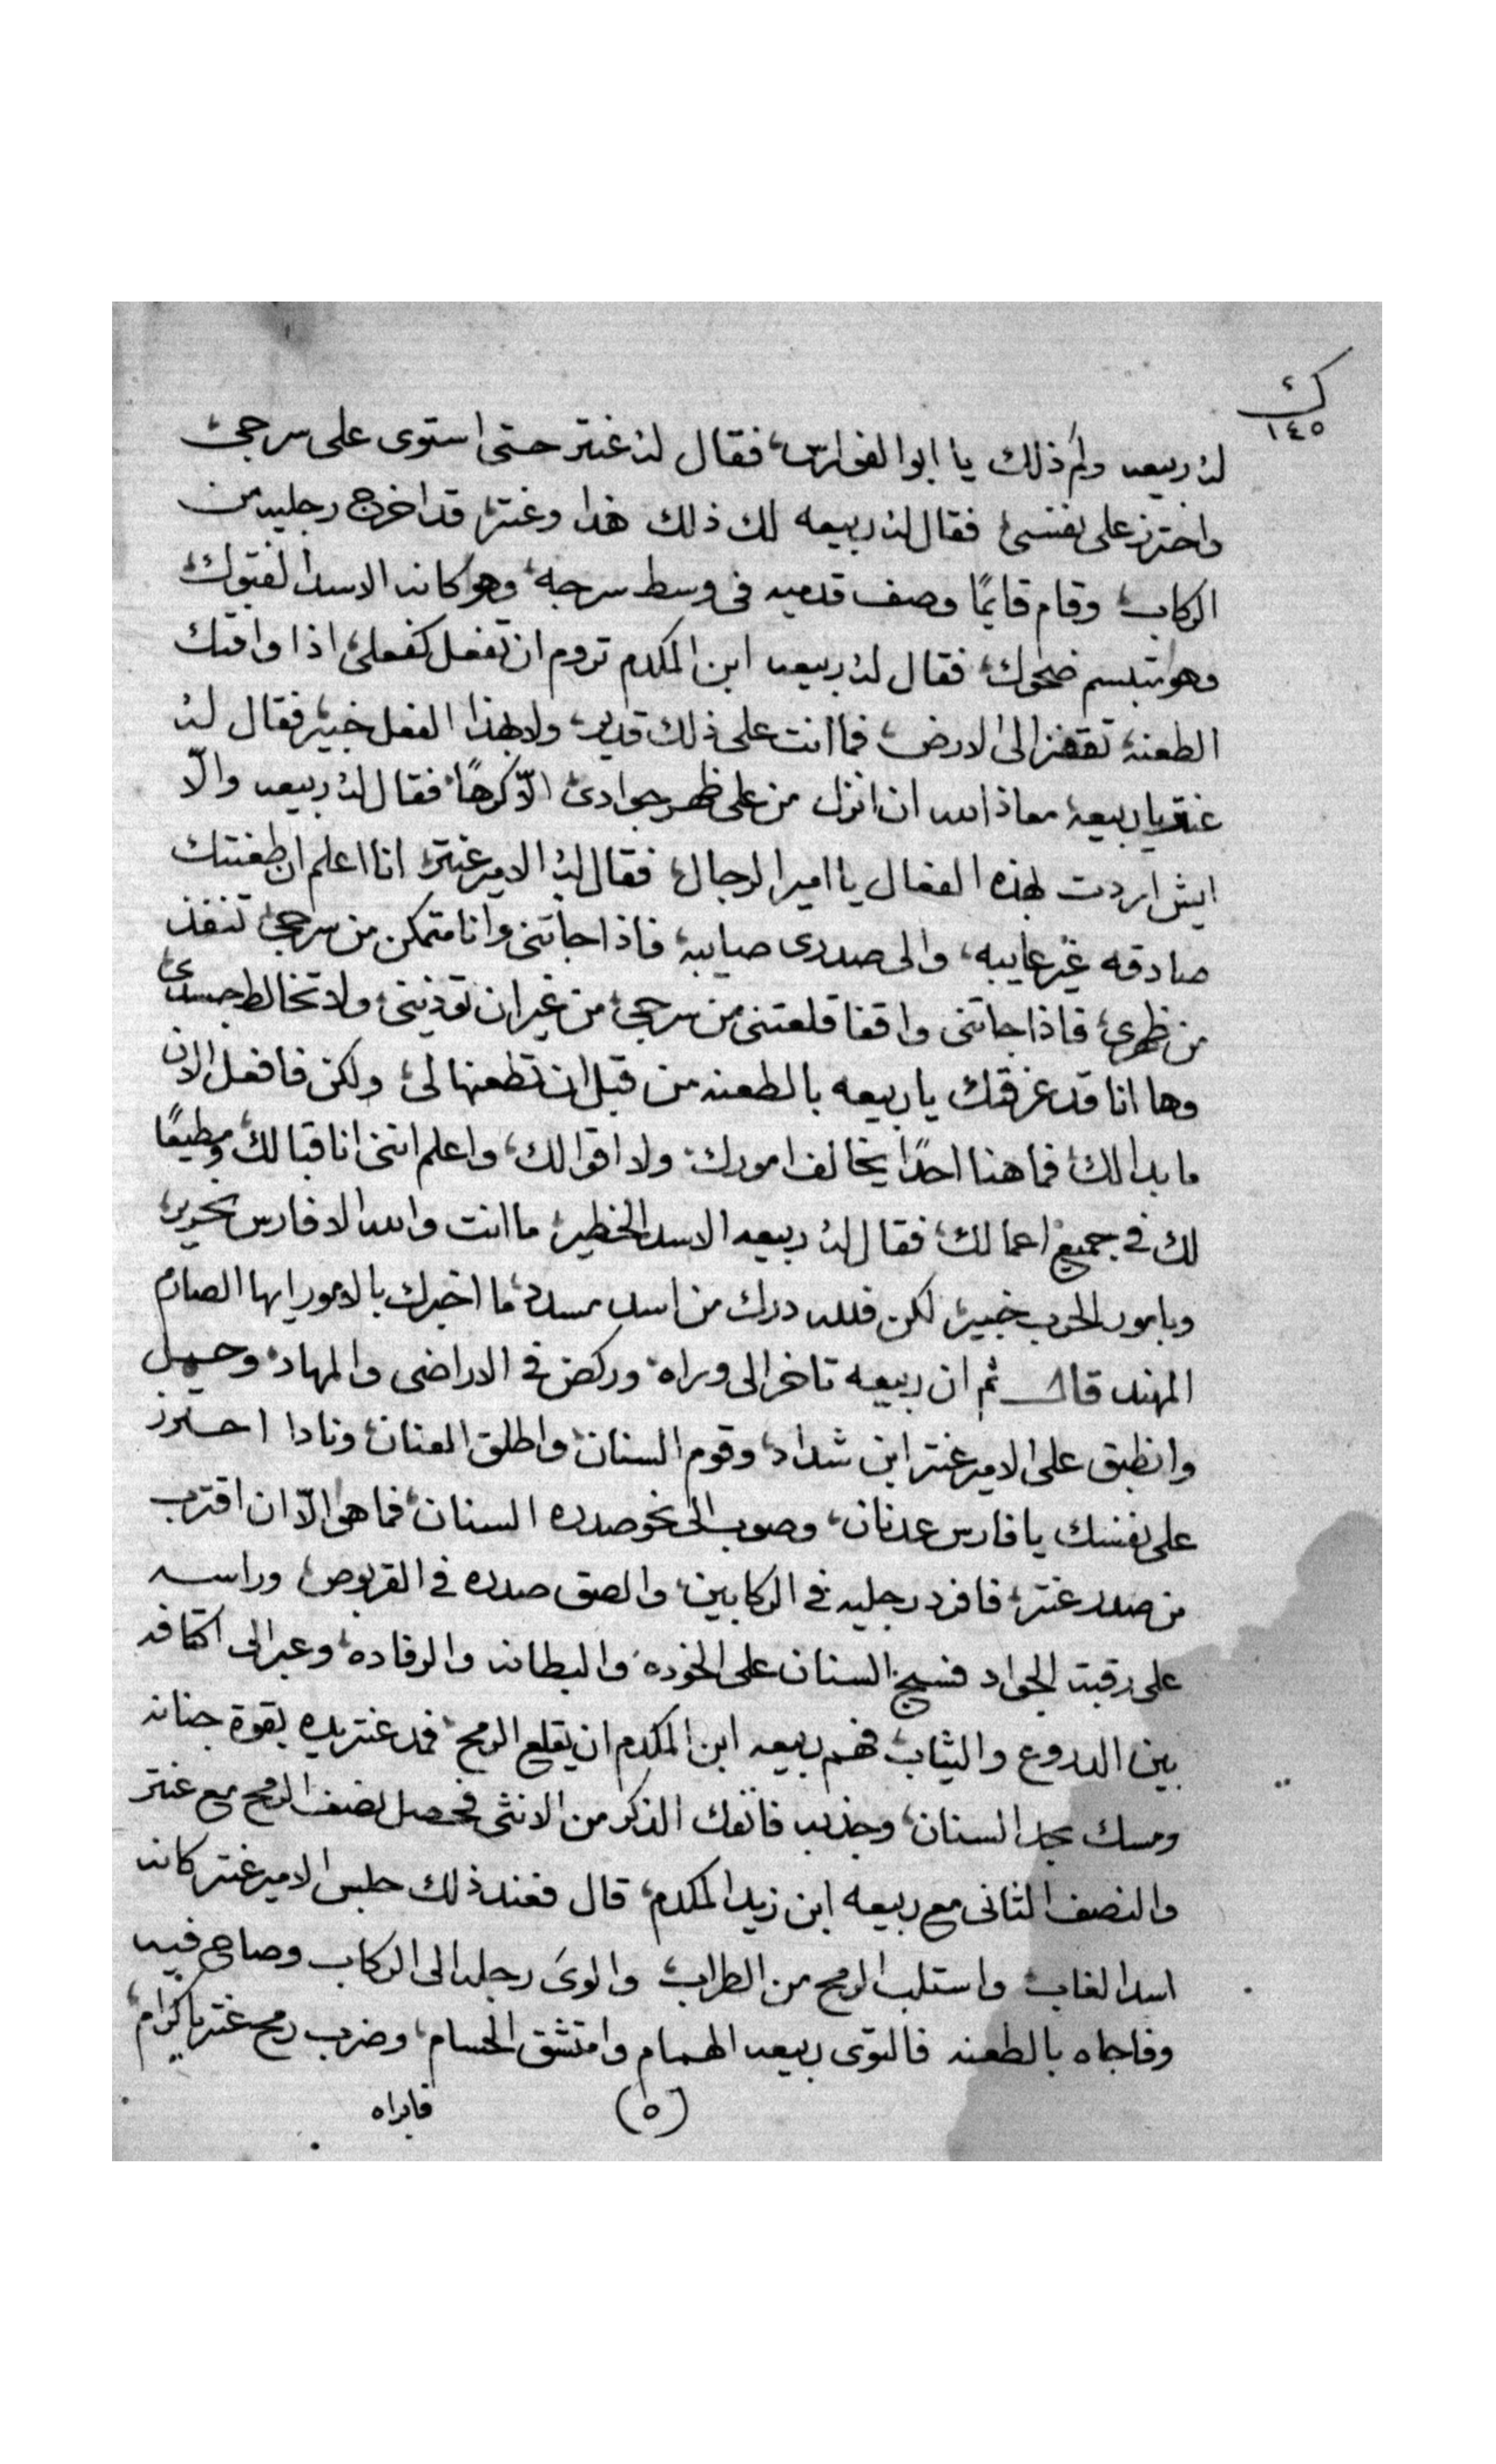 ك
١٤٥
له ربيعه ولم ذلك يا ابو الفوارس، فقال له عنتر حتى استوى على سرجى
واحترز على نفسى فقال له ربيعه لك ذلك هذا وعنتر قد اخرج رجليه من
الركاب وقام قايمًا وصف قدميه فى وسط سرجه وهو كانه الاسد الفتوك
وهو متبسم ضحوك فقال له ربيعه ابن المكدم تروم ان تفعل كفعلى اذا وافتك
الطعنه تقفز الى الارض فما انت على ذلك قدير ولا بهذا الفعل خبير فقال له
عنتر يا ربيعه معاذ الله ان انزل من على ظهر جوادى الّا كرهًا فقال له ربيعه والّا
ايش اردت بهذه الفعال يا امير الرجال فقال له الامير عنتر انا اعلم ان طعنتك
صادقه غير عايبه، والى صدرى صايبه فاذا جاتنى وانا متمكن من سرجى تنفذ
من ظهرى فاذا جاتنى واقفا قلعتنى من سرجى من غير ان توذينى ولا تخالط جسدى
وها انا قد عرفتك يا ربيعه بالطعنه من قبل ان تطعنها لى ولكن فافعل الان
ما بدا لك فما هنا احدًا يخالف امورك ولا اقوالك، واعلم اننى انا قبالك ومطيعًا
لك فى جميع اعمالك فقال له ربيعه الاسد الخطير ما انت والله الا فارس نحرير
وبامور الحرب خبير لكن فلله درك من اسد مسدد ما اخبرك بالامور ايها الصارم
المهند قال ثم ان ربيعه تاخر الى وراه وركض فى الاراضى والمهاد وحمل
وانطبق على الامير عنتر ابن شداد وقوم السنان واطلق العنان ونادا احترز
على نفسك يا فارس عدنان، وصوب الى نحو صدره السنان فما هو الّا ان اقترب
من صدر عنتر فافرد رجليه فى الركابين والصق صدره فى القربوص وراسه
على رقبة الجواد فسيح السنان على الخوده والبطانه والرفاده وعبر الى اكتافه
بين الدروع والثياب فهم ربيعه ابن المكدم ان يقلع الرمح فمد عنتر يده بقوة جنانه
ومسك بجل السنان وجذبه فانفك الذكر من الانثى فحصل نصف الرمح مع عنتر
والنصف الثانى مع ربيعه ابن زيد المكدم، قال فعند ذلك جلس الامير عنتر كانه
اسد الغاب واستلب الرمح من الطراب والوى رجله الى الركاب وصاح فيه
وفاجاه بالطعنه فالتوى ربيعه الهمام وامتشق الحسام وضرب رمح عنتر يا كرام
(٥)
فابراه